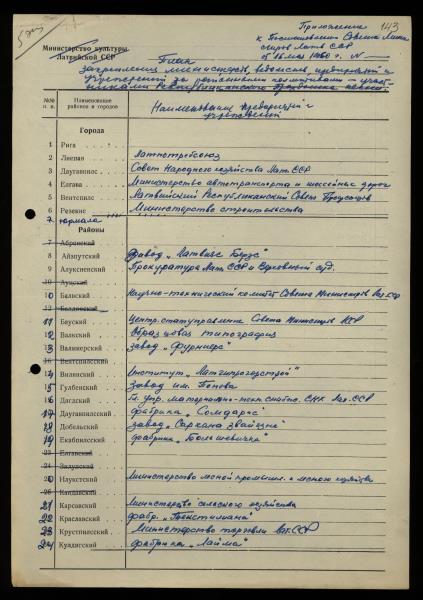 143
Приложение
к Постановлению Совета Мини
стров Латв ССР
от 18 мая 1960 г. №
Министерство культуры
Латвийской ССР
План
закрепления министерств, ведомств, предприятий и
учреждений за коллективами - участ
никами Республиканского Праздника песни.
№№ п. п.
Наименование районов и городов
Наименование предприятий и
учреждений
Города
1 Рига
2 Лиепая Латпотребсоюз
3 Даугавпилс Совет Народного хозяйства Лат. ССР
4 Елгава Министерство автотранспорта и шоссейных дорог
5 Вентспилс Латвийский Республиканский Совет Профсоюзов
6 Резекне Министерство строительства
7 Юрмала
Районы
7 Абренский
8 Айзпутский завод „Латвияс Берзс"
9 Алуксненский Прокуратура Лат. ССР и Верховный суд.
10 Ауцский
10 Балвский Научно-технический комитет Совета Министров Лат. ССР
12 Балдонский
11 Бауский Центр. статуправление Совета Министров ЛССР
12 Валкский Образцовая типография
13 Валмиерский завод „Фурниерс"
16 Вентспилсский
14 Вилянский Институт „Латгипрогорстрой"
15 Гулбенский завод им. Попова
16 Дагдский Гл. упр. материально-техн. снабж. СНХ Лат. ССР
17 Даугавпилсский фабрика „Сомдарис"
18 Добельский завод „Саркана звайгзне"
19 Екабпилсский фабрика „Большевичка"
23 Елгавский
24 Зилупский
20 Илукстский Министерство лесной промышл. и лесного хозяйства
26 Кандавский
21 Карсавский Министерство сельского хозяйства
22 Краславский фабр. „Текстилиана"
23 Крустпилсский Министерство торговли Лат. ССР
24 Кулдигский фабрика „Лайма"